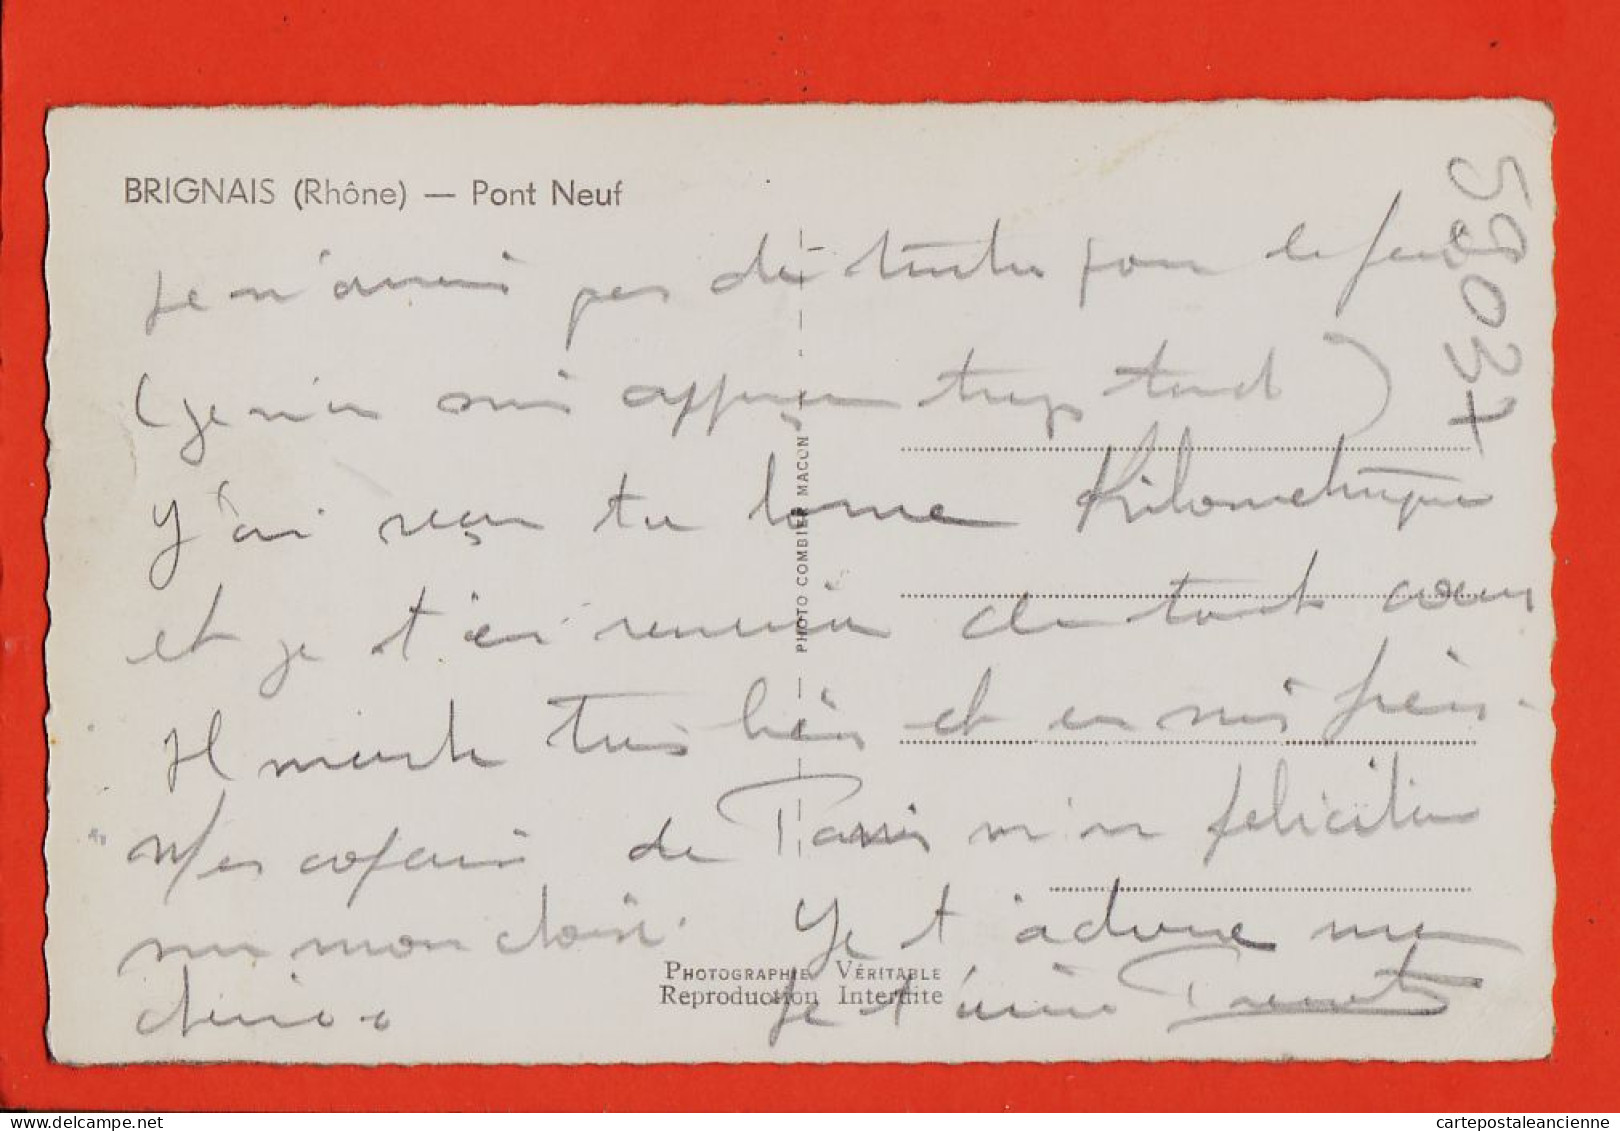 BRIGNAIS (Rhône) — Pont Neuf
je n'avais pas de timbre pour le
(je m'en suis aperçu trop tard)
J'ai reçu ta bonne kilométrique
et je t'en remercie de tout cœur
Il marche très bien et en suis
Mes copains de Paris m'en félicite
sur mon choix. Je t'adore mon
Je t'aime
PHOTO COMBIER MACON
PHOTOGRAPHIE VÉRITABLE
Reproduction Interdite
cartepostaleancienne